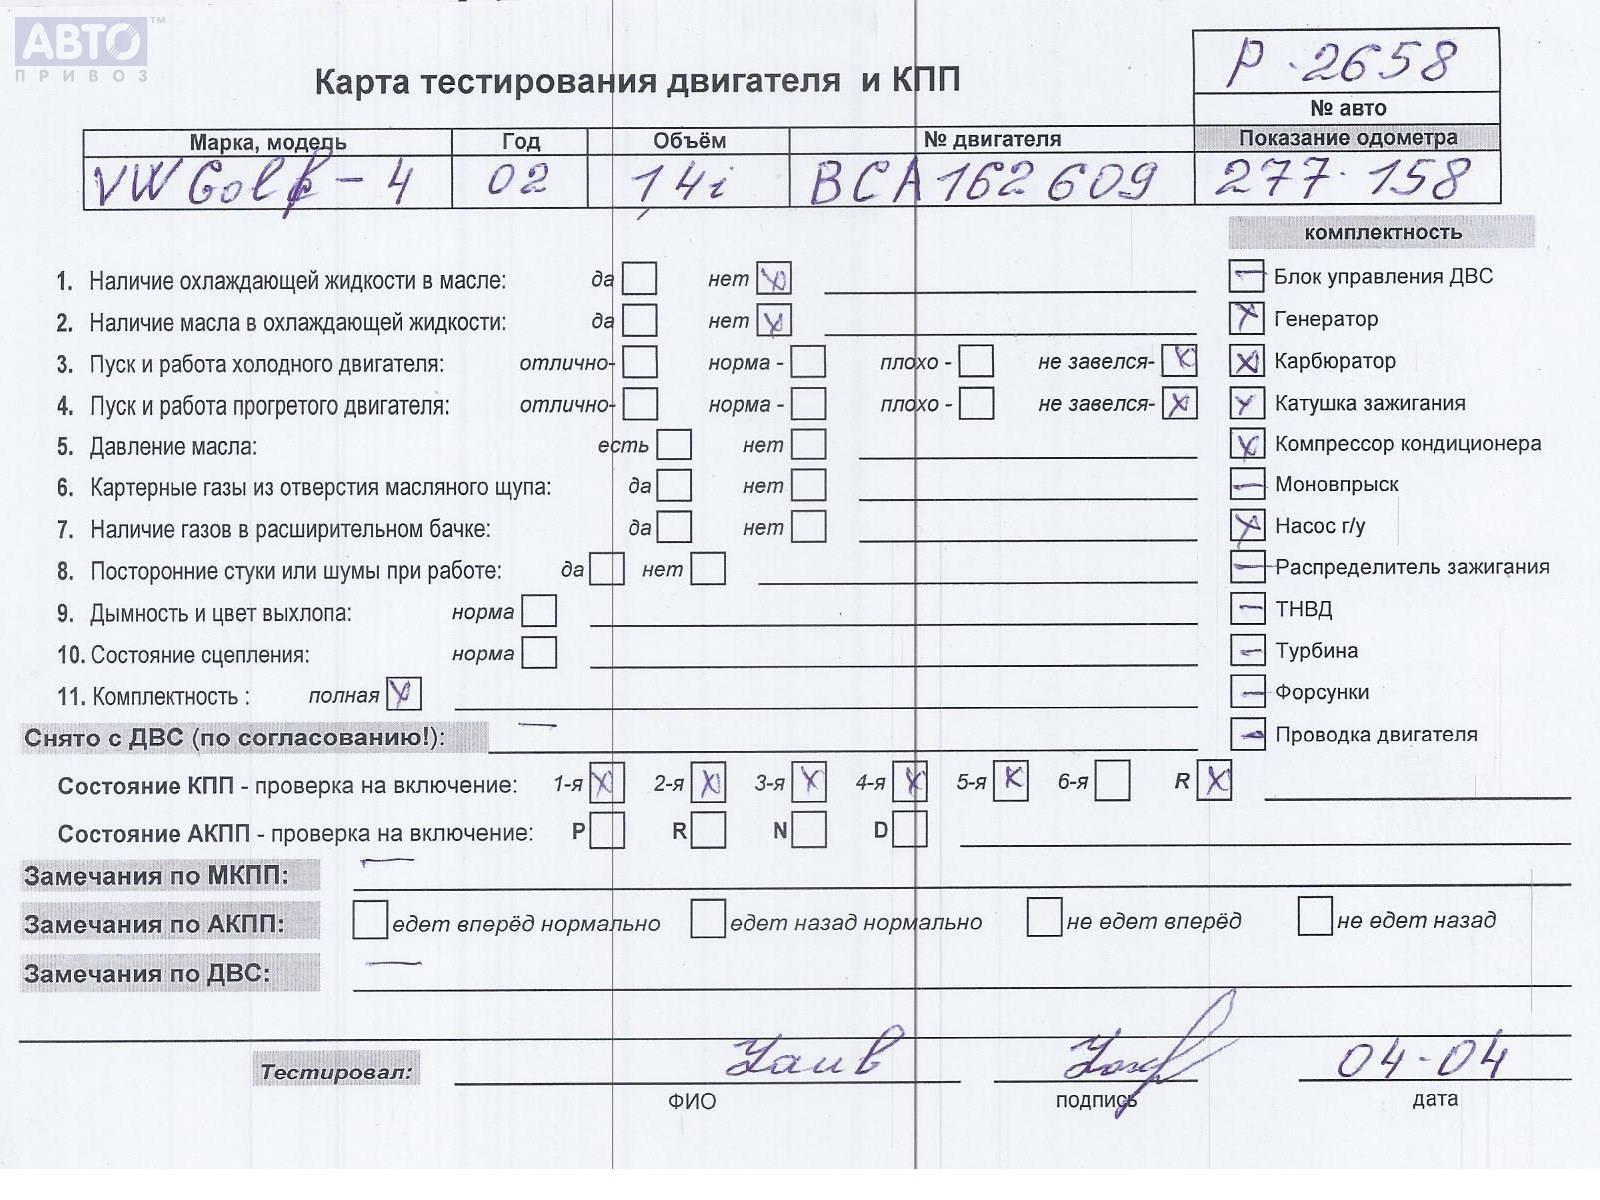 АВТО ™
ПРИВОЗ
Карта тестирования двигателя и КПП
P-2658
№ авто
Марка, модель Год Объём № двигателя Показание одометра
VW Golf-4 02 1,4i BCA 162 609 277.158
комплектность
1. Наличие охлаждающей жидкости в масле: да нет X
2. Наличие масла в охлаждающей жидкости: да нет X
3. Пуск и работа холодного двигателя: отлично- норма - плохо - не завелся- X
4. Пуск и работа прогретого двигателя: отлично- норма - плохо - не завелся- X
5. Давление масла: есть нет
6. Картерные газы из отверстия масляного щупа: да нет
7. Наличие газов в расширительном бачке: да нет
8. Посторонние стуки или шумы при работе: да нет
9. Дымность и цвет выхлопа: норма
10. Состояние сцепления: норма
11. Комплектность : полная X
– Блок управления ДВС
X Генератор
X Карбюратор
X Катушка зажигания
X Компрессор кондиционера
– Моновпрыск
X Насос г/у
– Распределитель зажигания
– ТНВД
– Турбина
– Форсунки
– Проводка двигателя
Снято с ДВС (по согласованию!): –
Состояние КПП - проверка на включение: 1-я X 2-я X 3-я X 4-я X 5-я X 6-я R X
Состояние АКПП - проверка на включение: P R N D
Замечания по МКПП: –
Замечания по АКПП: едет вперёд нормально едет назад нормально не едет вперёд не едет назад
Замечания по ДВС: –
Тестировал: 04-04
ФИО подпись дата